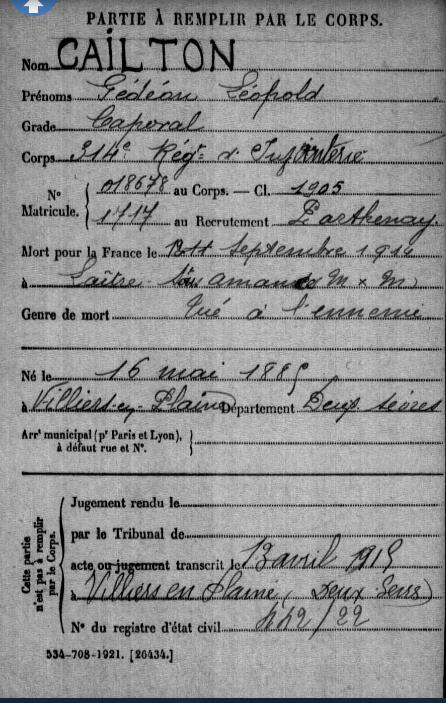 PARTIE À REMPLIR PAR LE CORPS.
Nom CAILTON
Prénoms Gédéon Léopold
Grade Caporal
Corps 314e Régt d'Infanterie
No Matricule. 018678 au Corps. — Cl. 1905
1717 au Recrutement Parthenay
Mort pour la France le Septembre 1914
à Laître amand M x M
Genre de mort Tué à l'ennemi
Né le 16 mai 1885
à Villiers-en-Plaine Département Deux Sèvres
Arrt municipal (pr Paris et Lyon),
à défaut rue et No.
Cette partie
n'est pas à remplir
par le Corps.
Jugement rendu le
par le Tribunal de
acte ou jugement transcrit le 13 avril 1915
à Villiers en Plaine, Deux Sèvres)
No du registre d'état civil 442/22
534-708-1921. [26434.]